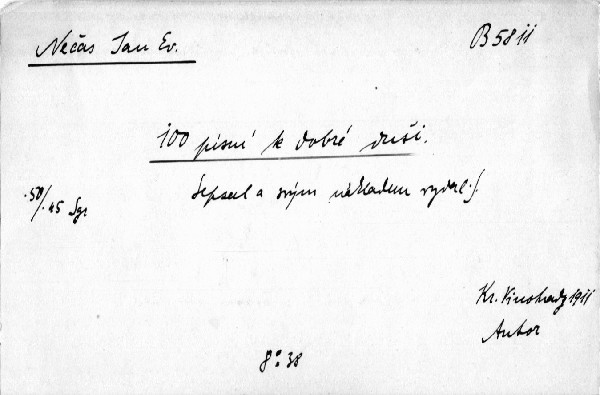 Nečas Jan Ev.
B 58 ii
100 písní k dobré duši.
Sepsal a svým nákladem vydal J.
50/.45 Sgr
Kr. Vinohrady 1911
Autor
8° 38